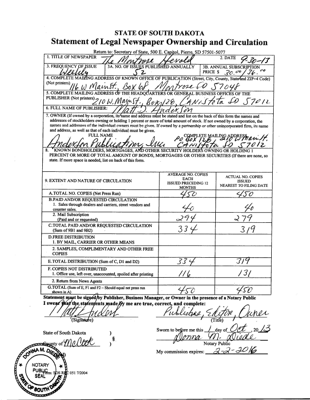 STATE OF SOUTH DAKOTA
Statement of Legal Newspaper Ownership and Circulation
Return to: Secretary of State, 500 E. Capitol, Pierre, SD 57501-5077
1. TITLE OF NEWSPAPER The Montrose Herald 2. DATE 9-30-13
3. FREQUENCY OF ISSUE Weekly
3A. NO. OF ISSUES PUBLISHED ANNUALLY 52
3B. ANNUAL SUBSCRIPTION PRICE $
4. COMPLETE MAILING ADDRESS OF KNOWN OFFICE OF PUBLICATION (Street, City, County, State and ZIP+4 Code)
(Not printers) Montrose SD 57048
5. COMPLETE MAILING ADDRESS OF THE HEADQUARTERS OF GENERAL BUSINESS OFFICES OF THE
PUBLISHER (Not printers) Canistota SD 57012
6. FULL NAME OF PUBLISHER: Matt J. Anderson
7. OWNER (If owned by a corporation, its name and address must be stated and
FULL NAME COMPLETE MAILING ADDRESS
Anderson Publications, Inc. Canistota SD 57012
8. KNOWN BONDHOLDERS, MORTGAGEES, AND OTHER SECURITY HOLDERS OWNING OR HOLDING 1
PERCENT OR MORE OF TOTAL AMOUNT OF BONDS, MORTGAGES OR OTHER SECURITIES (If there are none, so
state. If more space is needed, list on back of this form.
9. EXTENT AND NATURE OF CIRCULATION
AVERAGE NO. COPIES EACH ISSUED PRECEDING 12 MONTHS
ACTUAL NO. COPIES ISSUED NEAREST TO FILING DATE
A. TOTAL NO. COPIES (Net Press Run) 450 450
B. PAID AND/OR REQUESTED CIRCULATION
1. Sales through dealers and carriers, street vendors and
counter sales. 40 40
2. Mail Subscription
(Paid and or requested) 294 279
C. TOTAL PAID AND/OR REQUESTED CIRCULATION
(Sum of 9B1 and 9B2) 334 319
D. FREE DISTRIBUTION
1. BY MAIL, CARRIER OR OTHER MEANS
2. SAMPLES, COMPLIMENTARY AND OTHER FREE
COPIES
E. TOTAL DISTRIBUTION (Sum of C, D1 and D2) 334 319
F. COPIES NOT DISTRIBUTED
1. Office use, left over, unaccounted, spoiled after printing 116 131
2. Return from News Agents
G. TOTAL (Sum of E, F1 and F2 - Should equal net press run
shown in A) 450 450
Statement must be signed by Publisher, Business Manager, or Owner in the presence of a Notary Public
I swear that the statements made by me are true, correct, and complete:
Matt Anderson Publisher, Editor, Owner
(Signature) (Title)
State of South Dakota )
County of McCook ) §
Sworn to before me this 1 day of Oct, 2013
Donna M. Diede
Notary Public
My commission expires: 2-2-2016
DONNA M. DIEDE
NOTARY PUBLIC
SEAL
SOUTH DAKOTA